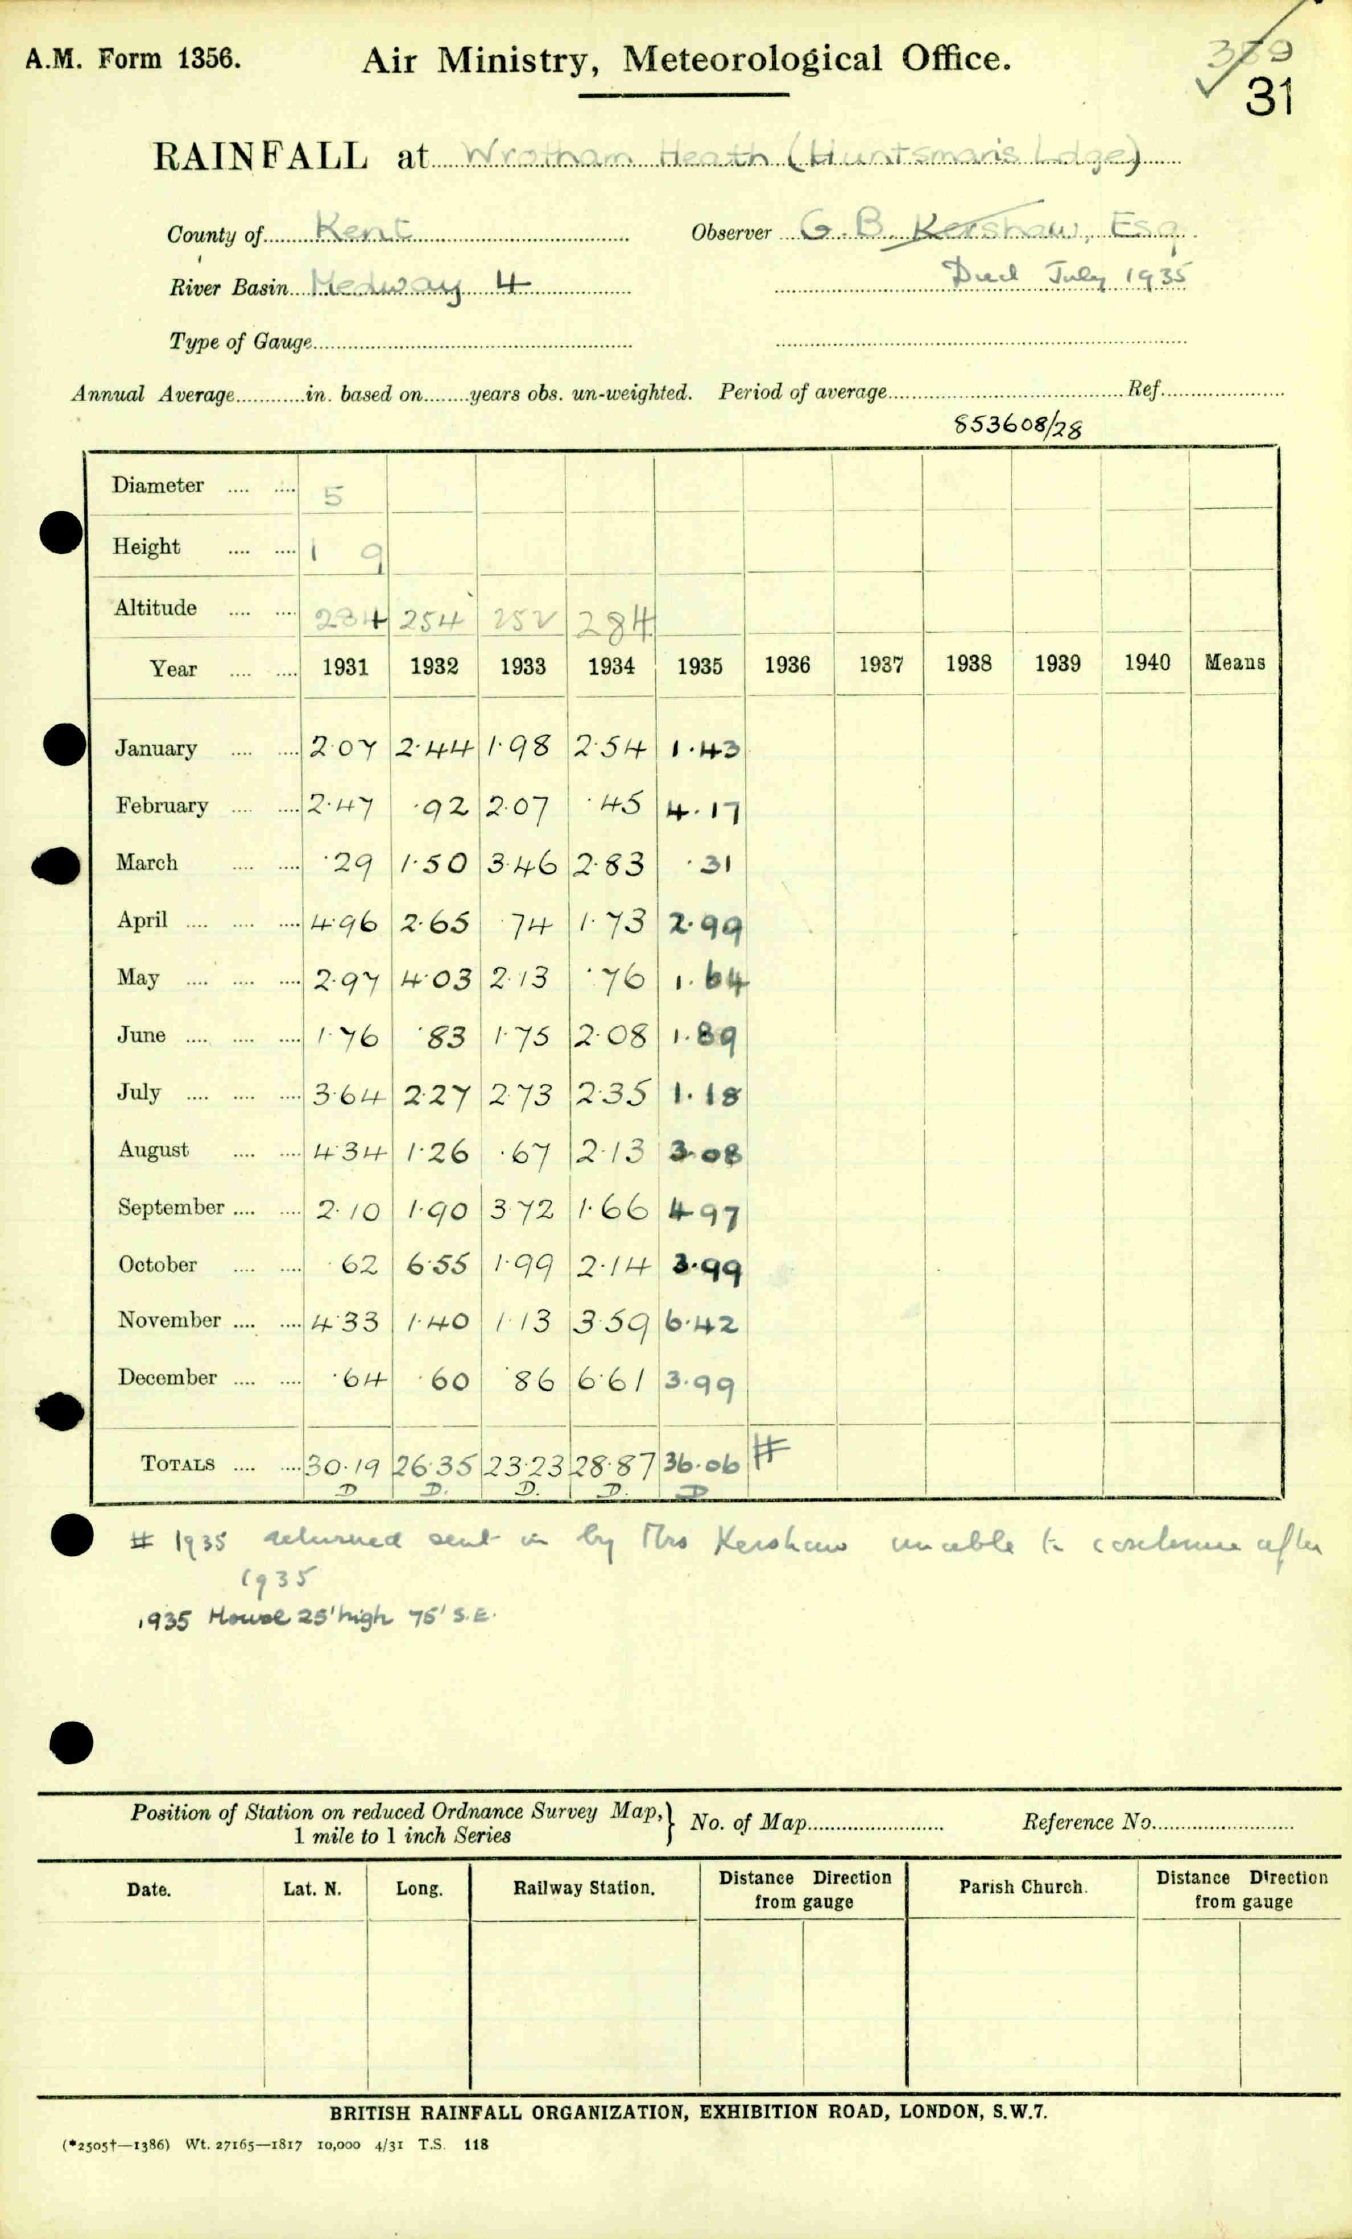 A.M. Form 1356.
Air Ministry, Meteorological Office.
31
RAINFALL at Wrotham Heath (Huntsman's Ldge)
County of Kent Observer G. B. Kershaw, Esq
River Basin Medway 4 Died July 1935
Type of Gauge
Annual Average in. based on years obs. un-weighted. Period of average Ref.
853608/28
Diameter 5
Height 1 9
Altitude 284 254 252 284
Year 1931 1932 1933 1934 1935 1936 1937 1938 1939 1940 Means
January 2.07 2.44 1.98 2.54 1.43
February 2.47 .92 2.07 .45 4.17
March .29 1.50 3.46 2.83 .31
April 4.96 2.65 .74 1.73 2.99
May 2.97 4.03 2.13 .76 1.64
June 1.76 .83 1.75 2.08 1.89
July 3.64 2.27 2.73 2.35 1.18
August 4.34 1.26 .67 2.13 3.08
September 2.10 1.90 3.72 1.66 4.97
October .62 6.55 1.99 2.14 3.99
November 4.33 1.40 1.13 3.59 6.42
December .64 .60 .86 6.61 3.99
TOTALS 30.19 26.35 23.23 28.87 36.06 #
D D. D. D. D
# 1935 returned sent in by Mrs Kershaw unable to continue after
1935
1935 House 25' high 75' S.E.
Position of Station on reduced Ordnance Survey Map, } No. of Map Reference No.
1 mile to 1 inch Series
Date. Lat. N. Long. Railway Station. Distance Direction from gauge Parish Church. Distance Direction from gauge
BRITISH RAINFALL ORGANIZATION, EXHIBITION ROAD, LONDON, S.W.7.
(*2505†—1386) Wt. 27165—1817 10,000 4/31 T.S. 118